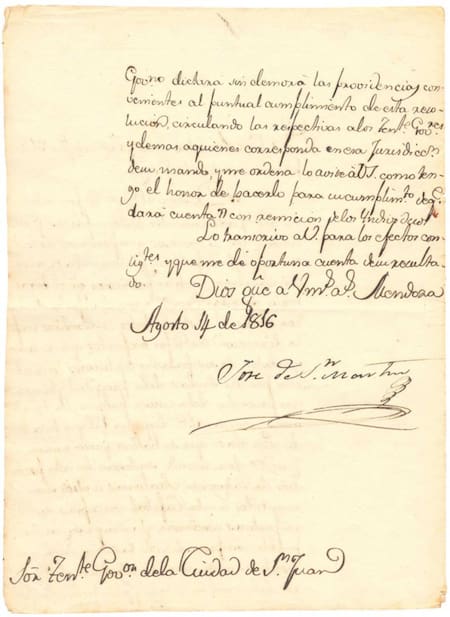 Govno dictara sin demora las providencias con-
venientes al puntual cumplimento de esta reso-
lucion, circulando las respectivas alos Tente Govres
y demas aquienes corresponda en esa Jurisdiccn
de su mando, y me ordena lo avise a V.S. como ten-
go el honor de hacerlo para su cumplimto de qe
dará cuenta con remision de los
Lo transcrivo a V. para los efectos con-
sigtes y que me de oportuna cuenta de su resulta-
do.
Dios gue a Vmd. as. Mendoza
Agosto 14 de 1816
Jose de Sn Martin
Sor Tente Govor de la Ciudad de Sn Juan